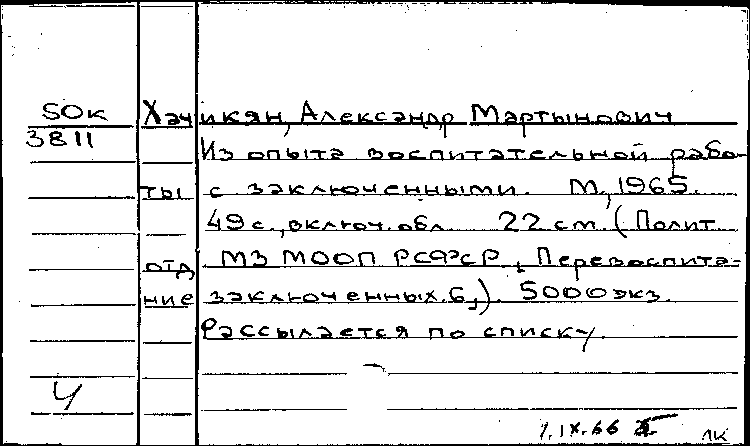 SOK Хачикян, Александр Мартынович
3811
Из опыта воспитательной рабо-
ты с заключенными. М., 1965.
49 с., включ. обл. 22 см. (Полит
отд МЗ МООП РСФСР, Перевоспита-
ние заключенных. 6,). 5000 экз.
Рассылается по списку.
Ч
1.IX.66
ЛК